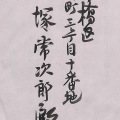 橋区
町三丁目十番地
塚常次郎